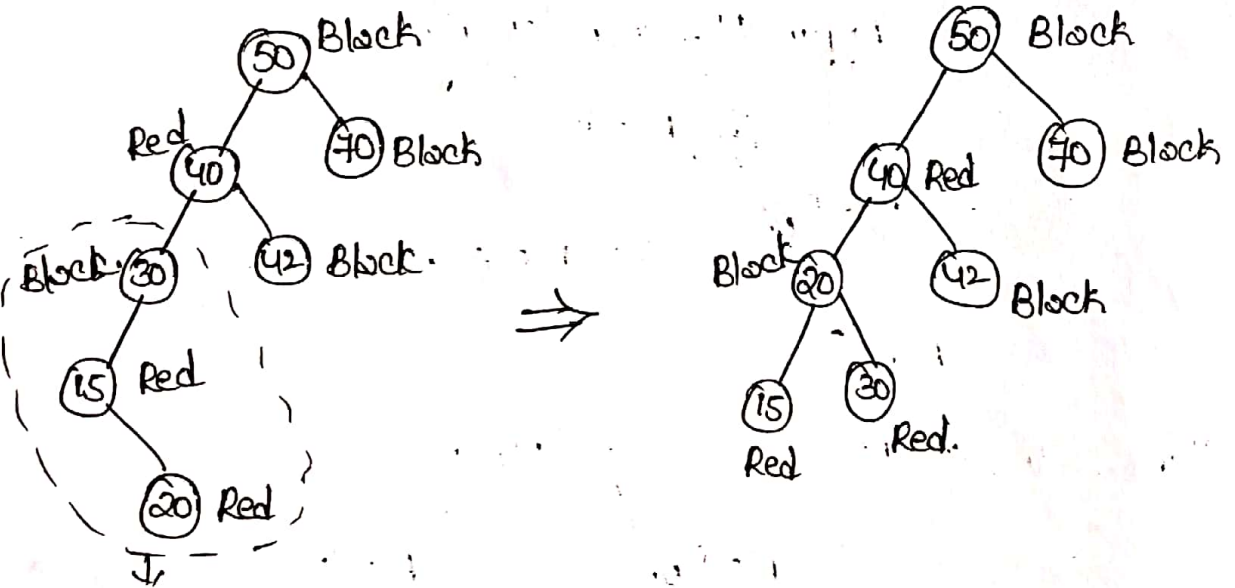 50 Black
Red 40
70 Black
Black 30
42 Black.
15 Red
20 Red
⇒
50 Black
40 Red
70 Black
Black 20
42 Black
15 Red
30 Red.